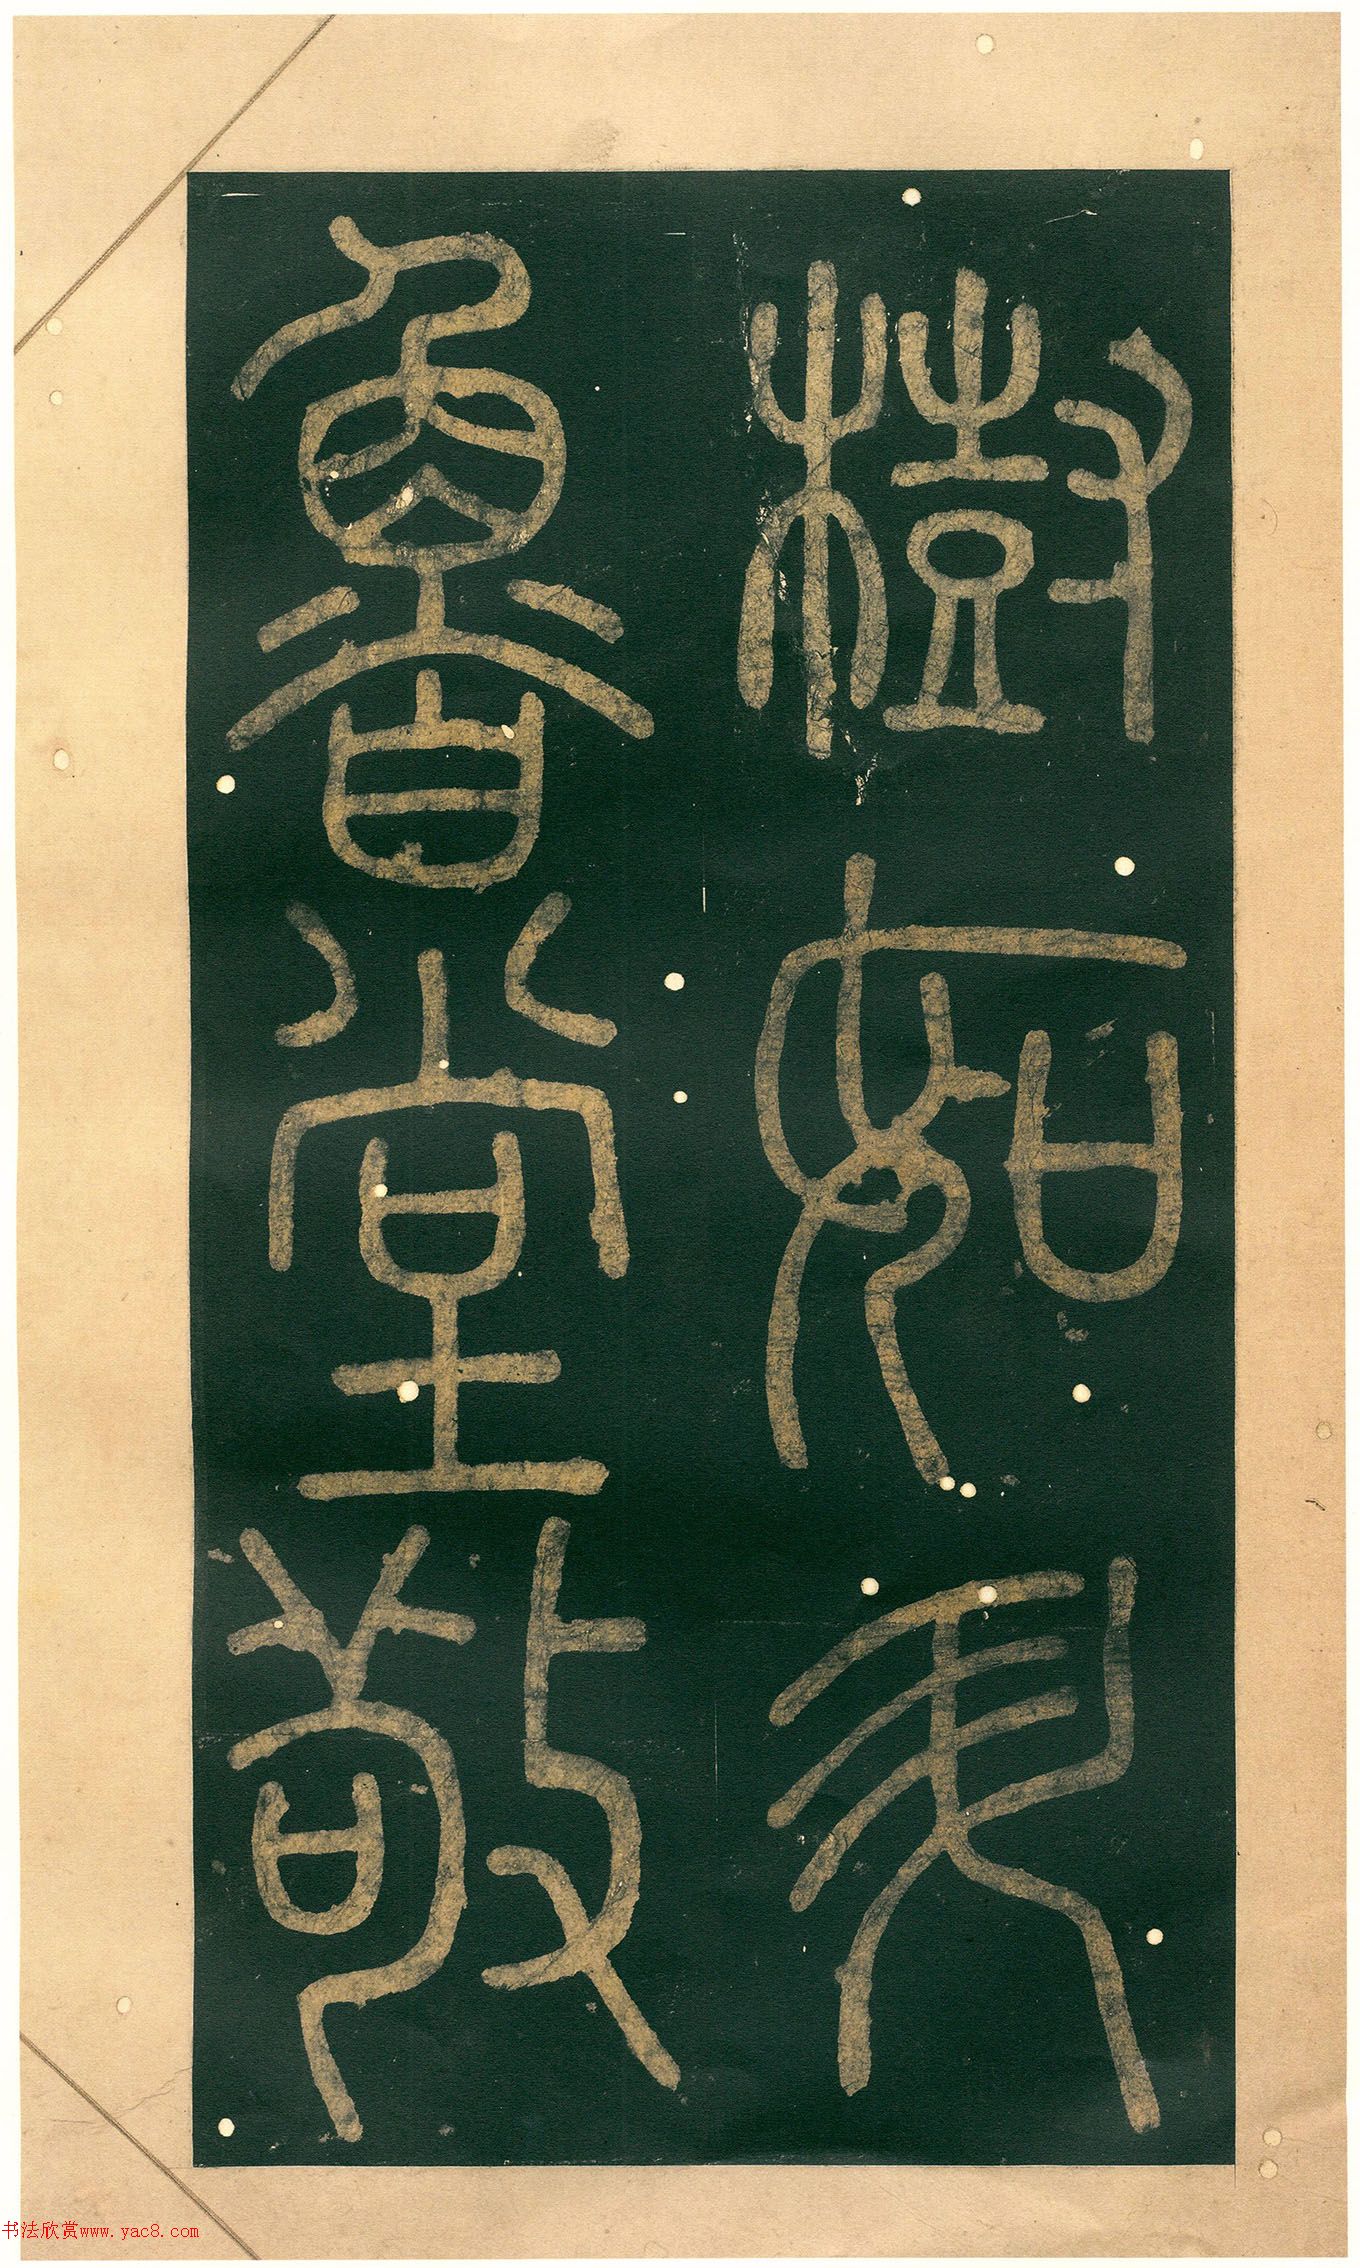 樹如
魯堂敬
书法欣赏www.yac8.com